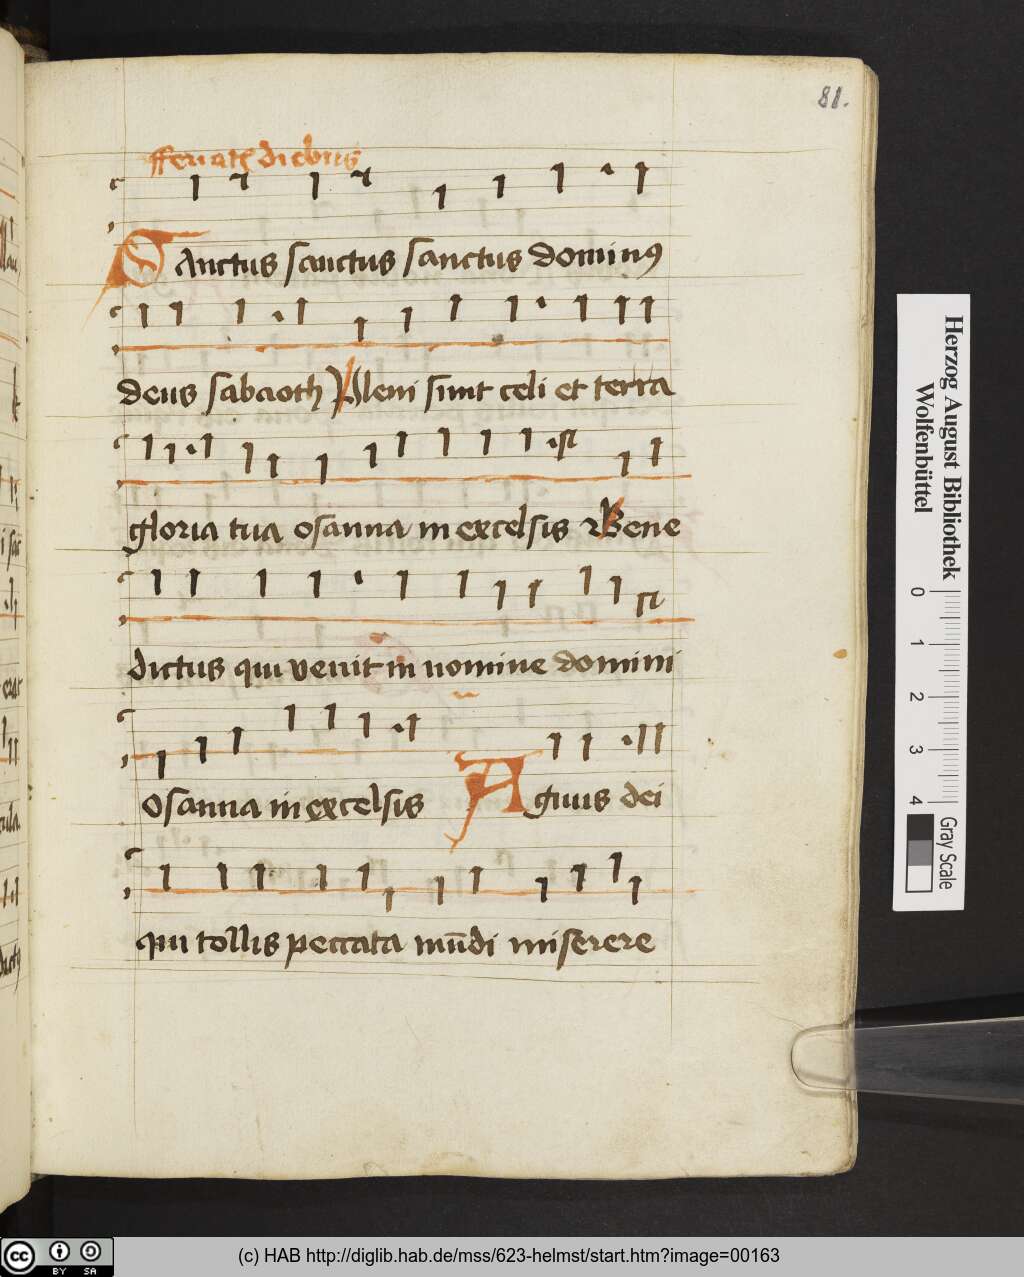 81.
fferiat(is) diebus
SAnctus sanctus sanctus dominꝰ
deus sabaoth Pleni sunt celi et terra
gloria tua osanna in excelsis Bene
dictus qui venit in nomine domini
Osanna in excelsis Agnus dei
qui tollis peccata mūdi miserere
Herzog August Bibliothek
Wolfenbüttel
0 1 2 3 4 Gray Scale
cc BY SA
(c) HAB http://diglib.hab.de/mss/623-helmst/start.htm?image=00163